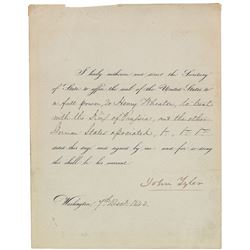 I hereby authorize and direct the Secretary
of State to affix the seal of the United States to
a full power, to Henry Wheaton, to treat
with the King of Prussia, and the other
German States associated, &c., &c. &c.
dated this day and signed by me: and for so doing
this shall be his warrant.
John Tyler
Washington, 7th March 1842.